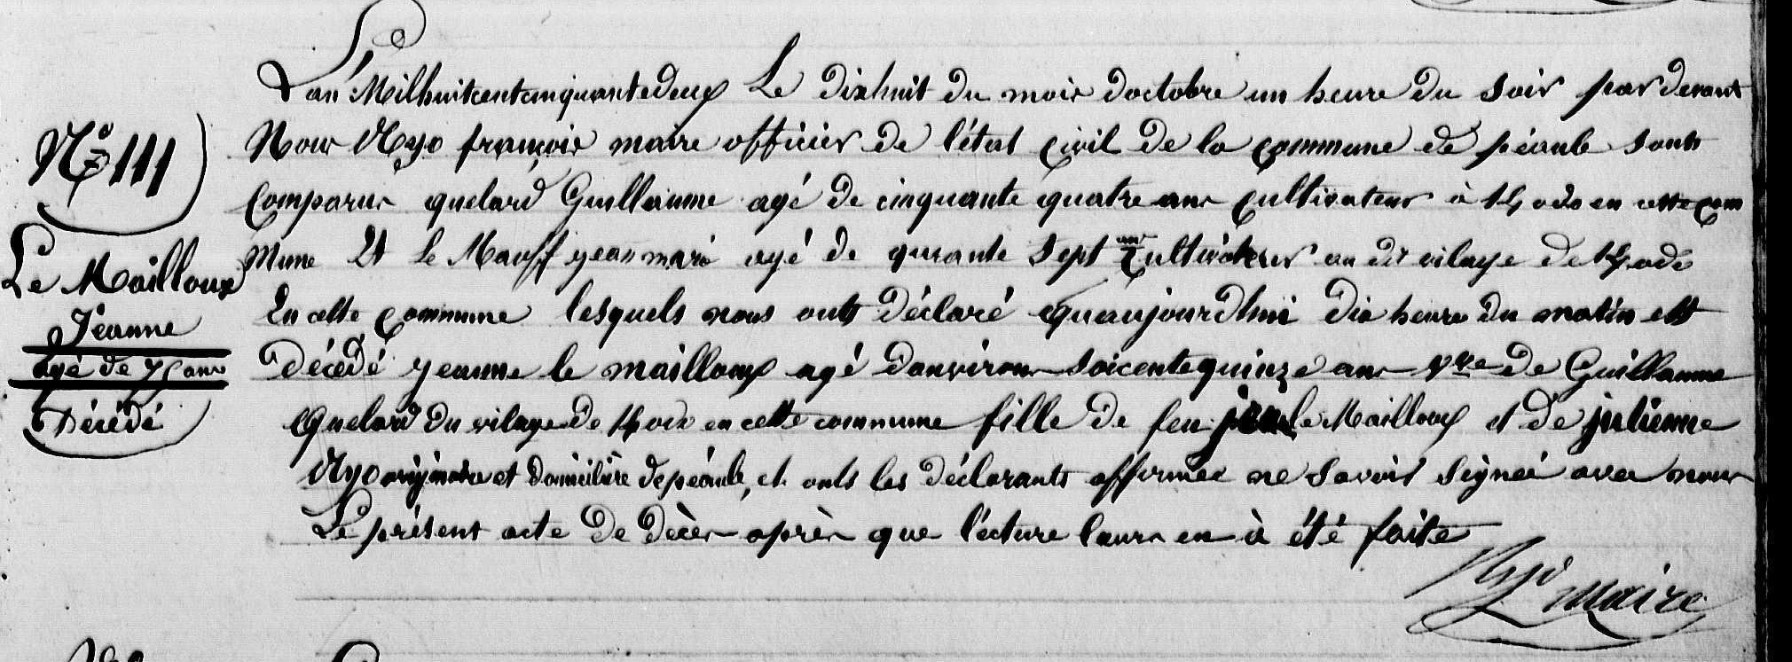 N° 111
Le Mailloux
Jeanne
agé de 75 ans
Décédé
L'an Milhuitcentcinquantedeux Le dixhuit du mois doctobre un heure du soir par devant
Nous Ryo françois maire officier de l'état Civil de la Commune de péaule sonts
Comparus quelard Guillaume agé de cinquante quatre ans Cultivateur à en cette Com
mune Et le Mauff yean marie agé de quarante Sept ans Cultivateur au dit vilage de
En cette Commune lesquels nous onts Déclaré Quaujourdhui dix heure du matin est
Décédé yeanne le mailloux agé Danviron soicentequinze ans Vve de Guillaume
Quelard du vilage de en cette commune fille de feu jean le Mailloux et de julienne
Ryo originaire et domicilière de péaule, et onts les déclarants affirmée ne Savoir Signée avec nous
Le présent acte De Décès après que lécture leurs en à été faite
Ryo maire